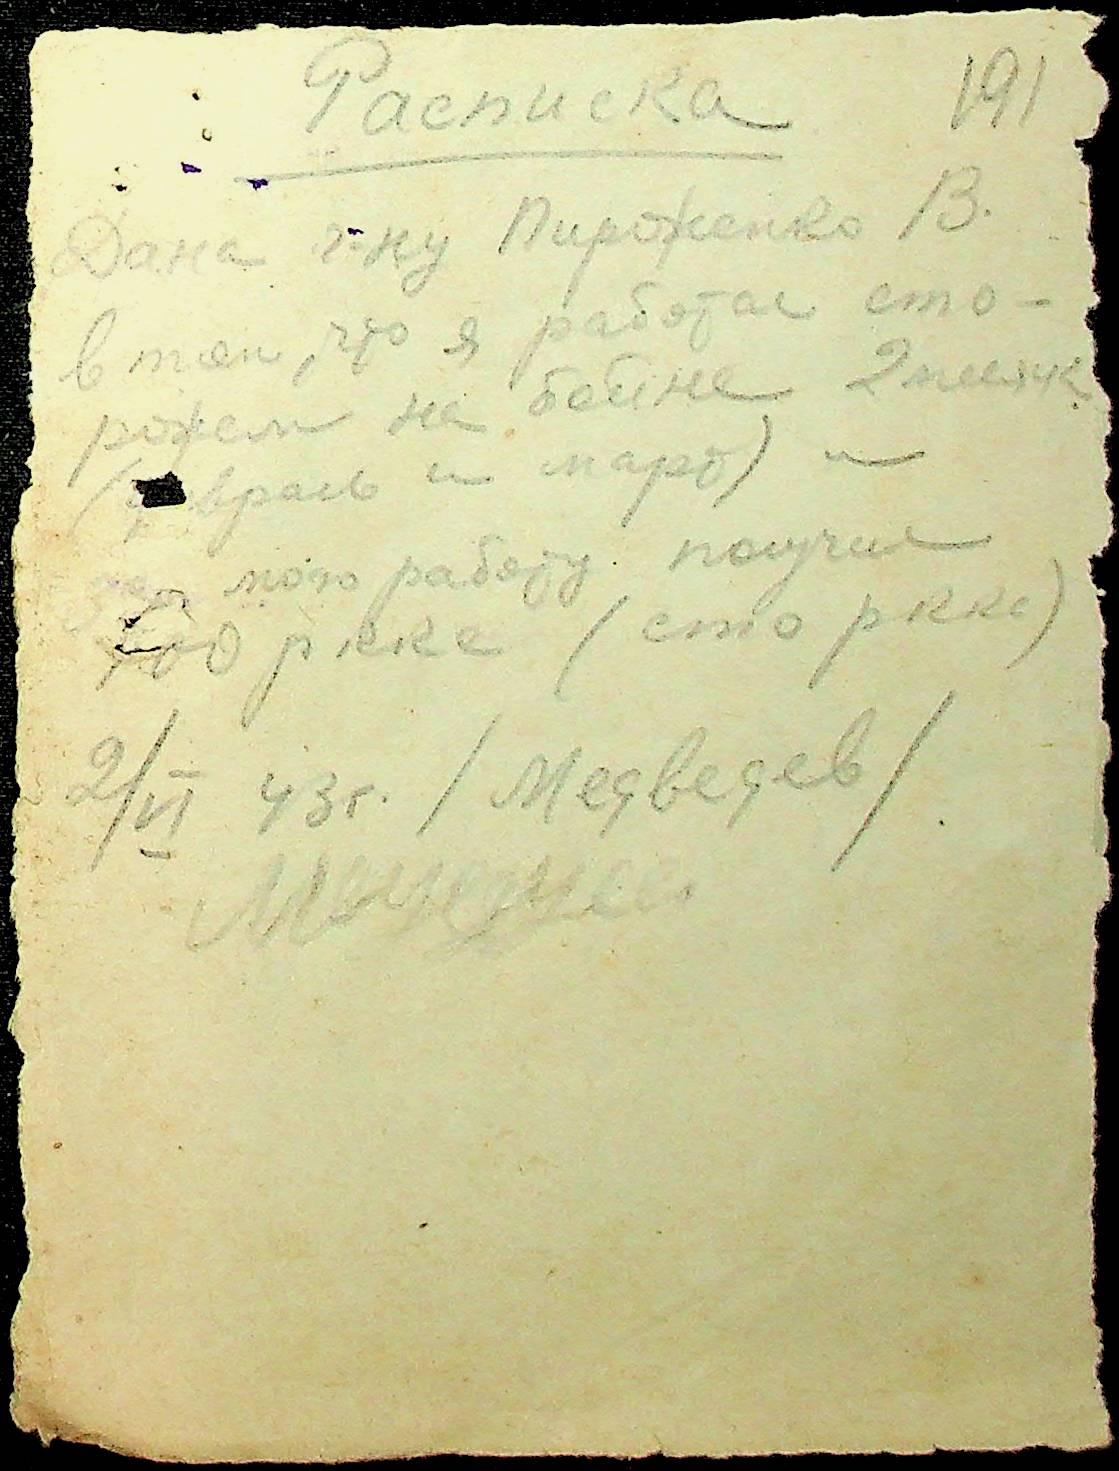 Расписка 191
Дана г-ну Пироженко В.
в том, что я работал сто-
рожем на бойне 2 месяца
(февраль и март) и
за мою работу получил
100 ркке (сто ркке)
2/VI 43г. /Медведев/